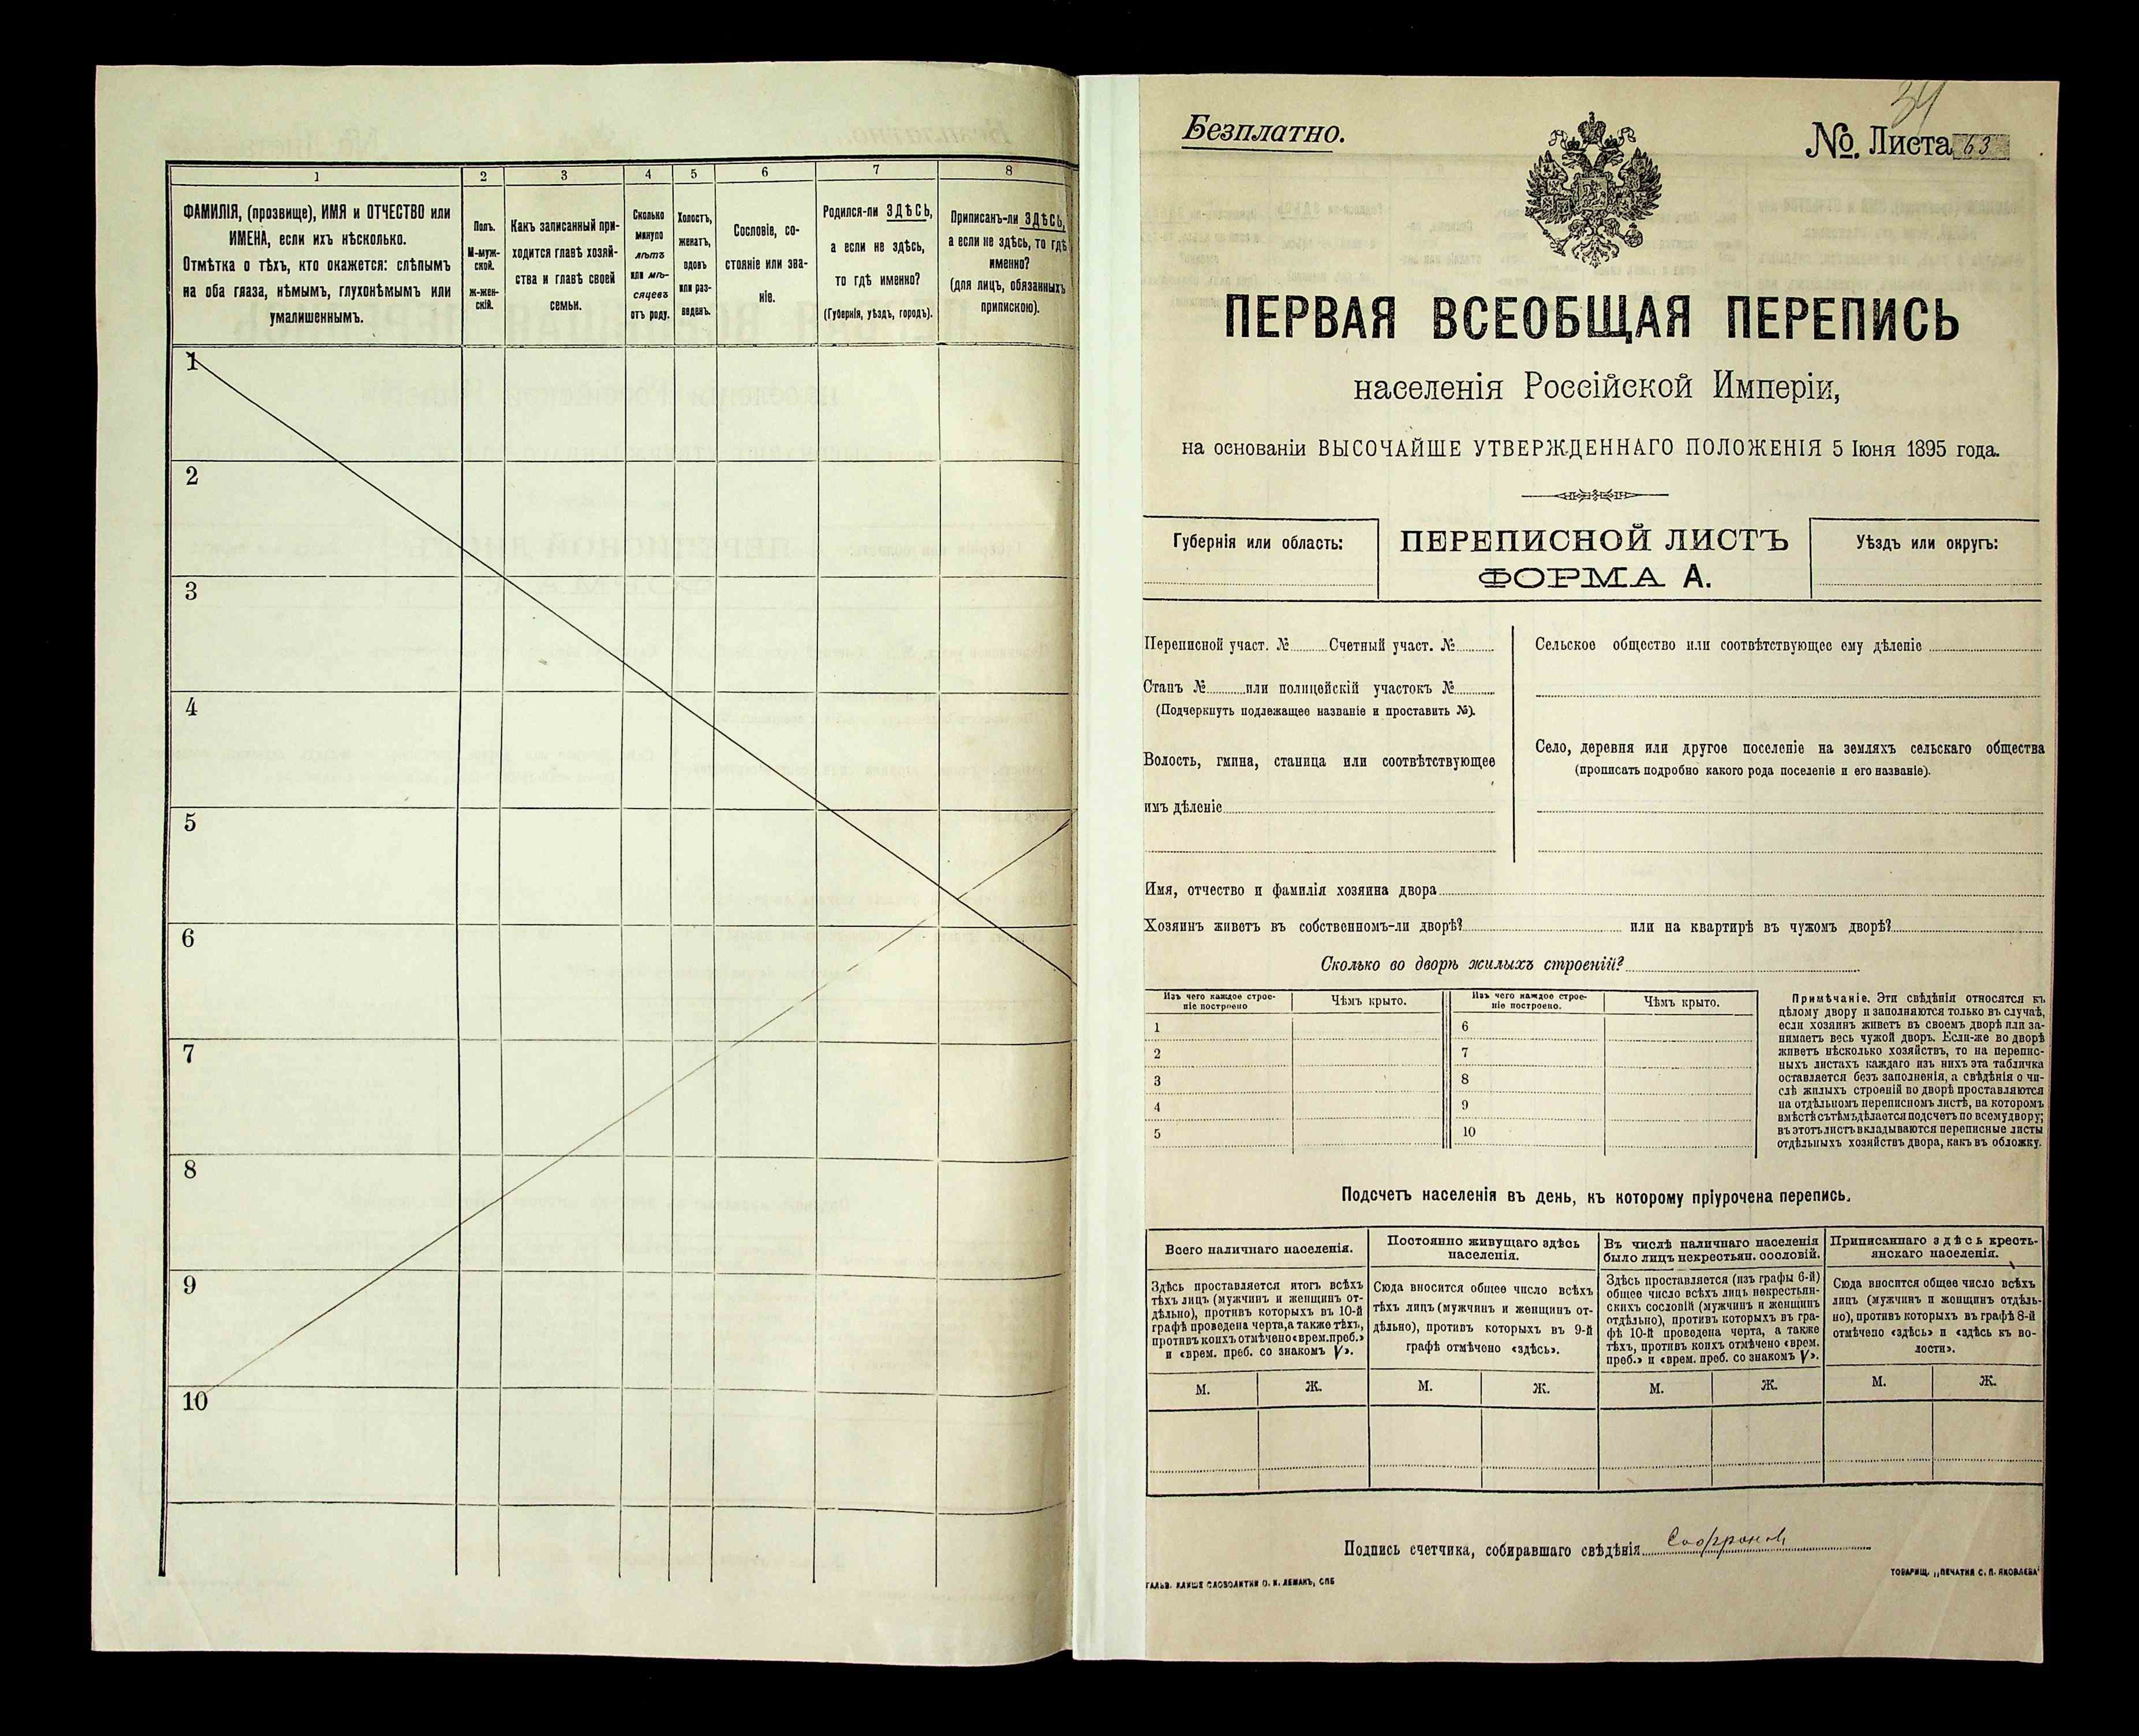 1
2
3
4
5
6
7
8
ФАМИЛІЯ, (прозвище), ИМЯ и ОТЧЕСТВО или
ИМЕНА, если ихъ нѣсколько.
Отмѣтка о тѣхъ, кто окажется: слѣпымъ
на оба глаза, нѣмымъ, глухонѣмымъ или
умалишеннымъ.
Полъ.
М-муж-
ской.
Ж-жен-
скій.
Какъ записанный при-
ходится главѣ хозяй-
ства и главѣ своей
семьи.
Сколько
минуло
лѣтъ
или мѣ-
сяцевъ
отъ роду.
Холостъ,
женатъ,
вдовъ
или раз-
веденъ.
Сословіе, со-
стояніе или зва-
ніе.
Родился-ли ЗДѢСЬ,
а если не здѣсь,
то гдѣ именно?
(Губернія, уѣздъ, городъ).
Приписанъ-ли ЗДѢСЬ,
а если не здѣсь, то гдѣ
именно?
(для лицъ, обязанныхъ
припискою).
1
2
3
4
5
6
7
8
9
10
34
Безплатно.
№. Листа 63
ПЕРВАЯ ВСЕОБЩАЯ ПЕРЕПИСЬ
населенія Россійской Имперіи,
на основаніи ВЫСОЧАЙШЕ УТВЕРЖДЕННАГО ПОЛОЖЕНІЯ 5 Іюня 1895 года.
Губернія или область:
ПЕРЕПИСНОЙ ЛИСТЪ
ФОРМА А.
Уѣздъ или округъ:
Переписной участ. № Счетный участ. №
Станъ № или полицейскій участокъ №
(Подчеркнуть подлежащее названіе и проставить №).
Волость, гмина, станица или соотвѣтствующее
имъ дѣленіе
Сельское общество или соотвѣтствующее ему дѣленіе
Село, деревня или другое поселеніе на земляхъ сельскаго общества
(прописать подробно какого рода поселеніе и его названіе).
Имя, отчество и фамилія хозяина двора
Хозяинъ живетъ въ собственномъ-ли дворѣ? или на квартирѣ въ чужомъ дворѣ?
Сколько во дворѣ жилыхъ строеній?
Изъ чего каждое строе-
ніе построено
Чѣмъ крыто.
Изъ чего каждое строе-
ніе построено.
Чѣмъ крыто.
1
2
3
4
5
6
7
8
9
10
Примѣчаніе. Эти свѣдѣнія относятся къ
цѣлому двору и заполняются только въ случаѣ,
если хозяинъ живетъ въ своемъ дворѣ или за-
нимаетъ весь чужой дворъ. Если-же во дворѣ
живетъ нѣсколько хозяйствъ, то на перепис-
ныхъ листахъ каждаго изъ нихъ эта табличка
оставляется безъ заполненія, а свѣдѣнія о чи-
слѣ жилыхъ строеній во дворѣ проставляются
на отдѣльномъ переписномъ листѣ, на которомъ
вмѣстѣ съ тѣмъ дѣлается подсчетъ по всему двору;
въ этотъ листъ вкладываются переписные листы
отдѣльныхъ хозяйствъ двора, какъ въ обложку.
Подсчетъ населенія въ день, къ которому пріурочена перепись.
Всего наличнаго населенія.
Постоянно живущаго здѣсь
населенія.
Въ числѣ наличнаго населенія
было лицъ некрестьян. сословій.
Приписаннаго здѣсь кресть-
янскаго населенія.
Здѣсь проставляется итогъ всѣхъ
тѣхъ лицъ (мужчинъ и женщинъ от-
дѣльно), противъ которыхъ въ 10-й
графѣ проведена черта, а также тѣхъ,
противъ коихъ отмѣчено «врем. преб.»
и «врем. преб. со знакомъ V».
Сюда вносится общее число всѣхъ
тѣхъ лицъ (мужчинъ и женщинъ от-
дѣльно), противъ которыхъ въ 9-й
графѣ отмѣчено «здѣсь».
Здѣсь проставляется (изъ графы 6-й)
общее число всѣхъ лицъ некрестьян-
скихъ сословій (мужчинъ и женщинъ
отдѣльно), противъ которыхъ въ гра-
фѣ 10-й проведена черта, а также
тѣхъ, противъ коихъ отмѣчено «врем.
преб.» и «врем. преб. со знакомъ V».
Сюда вносится общее число всѣхъ
лицъ (мужчинъ и женщинъ отдѣль-
но), противъ которыхъ въ графѣ 8-й
отмѣчено «здѣсь» и «здѣсь къ во-
лости».
М. Ж. М. Ж. М. Ж. М. Ж.
Подпись счетчика, собиравшаго свѣдѣнія Софронов
ГАЛЬВ. КЛИШЕ СЛОВОЛИТНИ О. И. ЛЕМАНЪ, СПБ
ТОВАРИЩ. „ПЕЧАТНЯ С. П. ЯКОВЛЕВА“